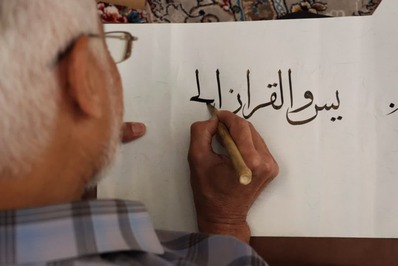 يس والقران الح